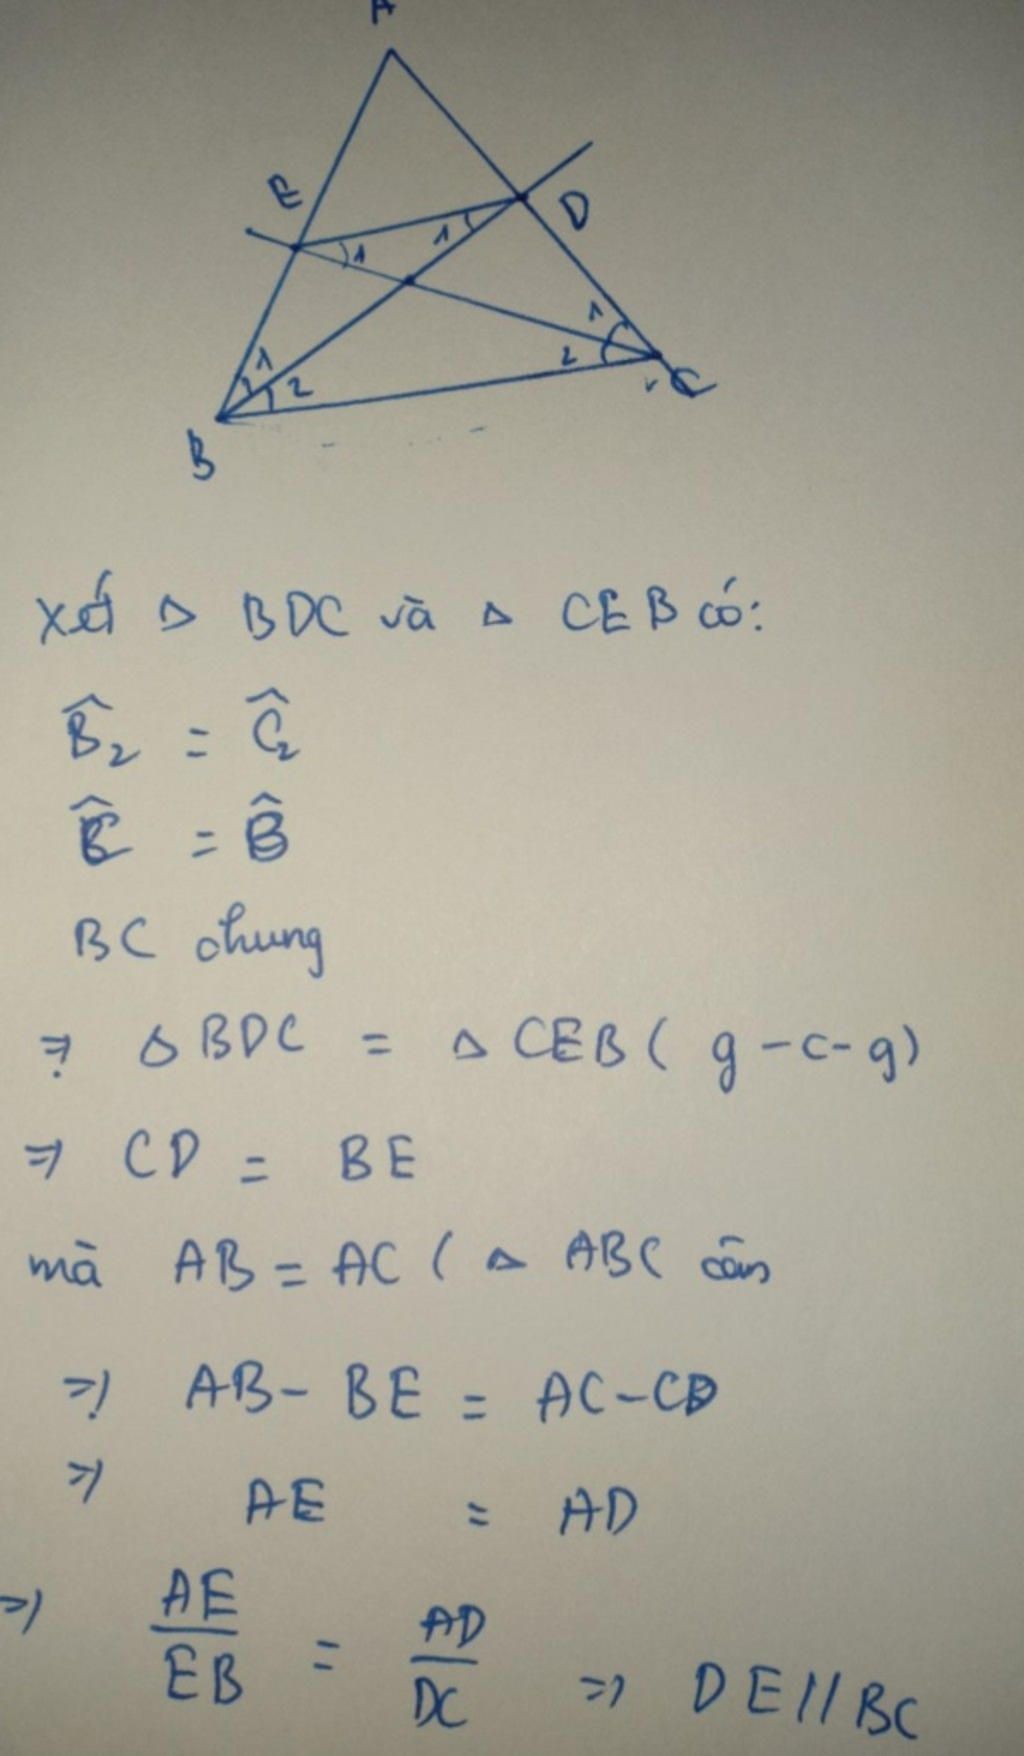 A
E
D
1
1
1
1
2
2
C
B
Xét Δ BDC và Δ CEB có:
B̂₂ = Ĉ₂
Ĉ = B̂
BC chung
⇒ Δ BDC = Δ CEB ( g - c - g )
⇒ CD = BE
mà AB = AC ( Δ ABC cân
⇒ AB - BE = AC - CD
⇒ AE = AD
⇒ AE/EB = AD/DC ⇒ DE // BC